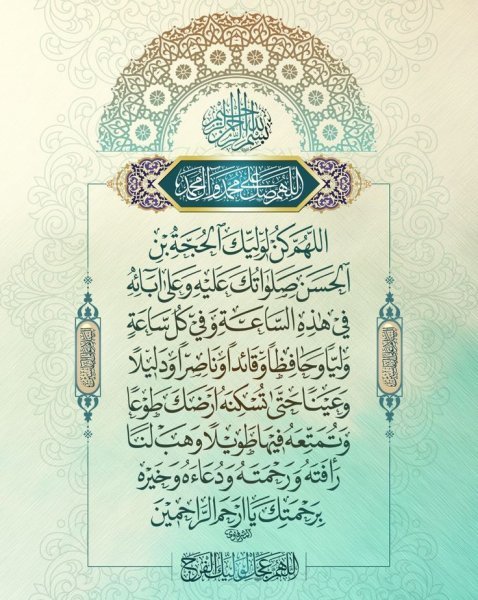 بسم الله الرحمن الرحيم
اللهم صل على محمد وآل محمد
اللَّهُمَّ كُنْ لِوَلِيِّكَ الْحُجَّةِ بْنِ
الْحَسَنِ صَلَوَاتُكَ عَلَيْهِ وَعَلَى آبَائِهِ
فِي هَذِهِ السَّاعَةِ وَفِي كُلِّ سَاعَةٍ
وَلِيّاً وَحَافِظاً وَقَائِداً وَنَاصِراً وَدَلِيلًا
وَعَيْناً حَتَّى تُسْكِنَهُ أَرْضَكَ طَوْعاً
وَتُمَتِّعَهُ فِيهَا طَوِيلًا وَهَبْ لَنَا
رَأْفَتَهُ وَرَحْمَتَهُ وَدُعَاءَهُ وَخَيْرَهُ
بِرَحْمَتِكَ يَا أَرْحَمَ الرَّاحِمِينَ
اللهم عجل لوليك الفرج